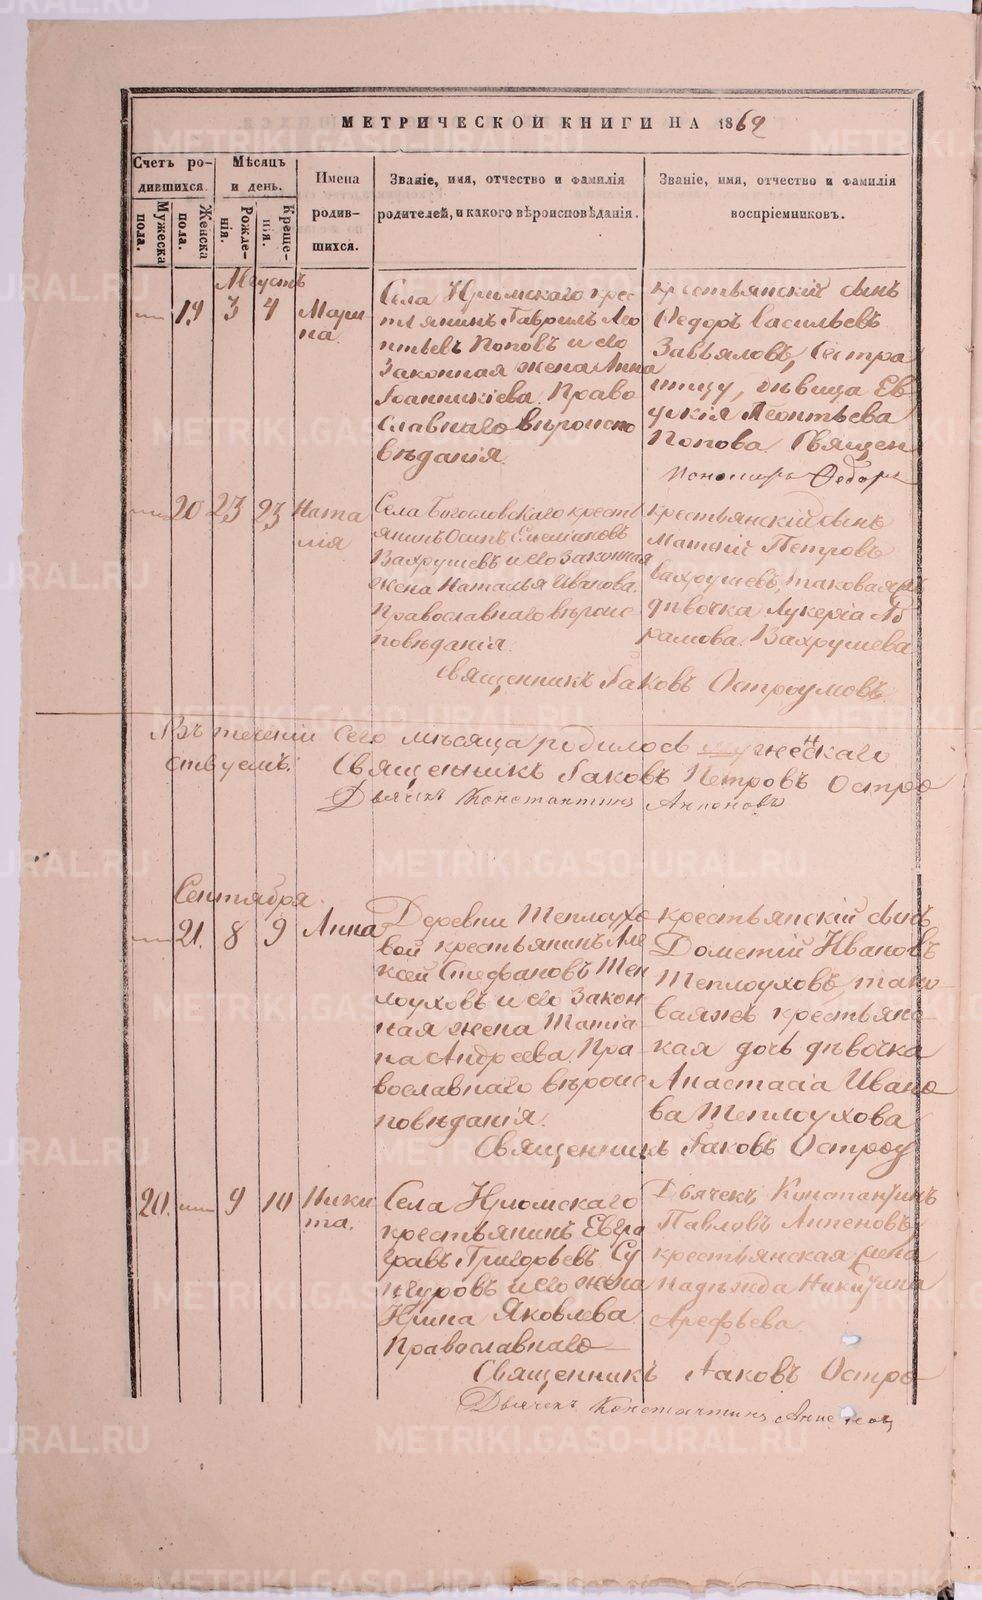 МЕТРИЧЕСКОЙ КНИГИ НА 1869
Счетъ ро-
дившихся.
Мѣсяцъ
и день.
Имена
родив-
шихся.
Званіе, имя, отчество и фамилія
родителей, и какого вѣроисповѣданія.
Званіе, имя, отчество и фамилія
воспріемниковъ.
Мужеска
пола.
Женска
пола.
Рожде-
нія.
Креще-
нія.
Августъ
19 3 4
Мари
на.
Села
крес
тьянинъ Гавріилъ Лео
нтьевъ Поповъ и его
Законная жена Анна
Іоанникіева. Право
славнаго вѣроиспо
вѣданія.
крестьянскій сынъ
Ѳедоръ Васильевъ
Завьяловъ,
дѣвица Ев
докія Леонтьева
Попова. Священ
Пономарь Ѳедоръ
20 23 23
Ната
лія
Села Богословскаго кресть
янинъ Осипъ
Вахрушевъ и его Законная
жена Наталья Иванова.
Православнаго вѣроис
повѣданія.
крестьянскій сынъ
Петровъ
Вахрушевъ,
дѣвочка Лукерія Аб
рамова Вахрушева
Священникъ Іаковъ Остроумовъ
Въ теченіи сего мѣсяца родилось
ствуемъ:
Священникъ Іаковъ Петровъ Остро
Дьячекъ Константинъ
Сентября.
21. 8 9
Анна
Деревни Теплоухо
вой крестьянинъ Але
ксей Стефановъ Теп
лоуховъ и его Закон
ная жена Татіа
на Андреева. Пра
вославнаго вѣроис
повѣданія.
крестьянскій сынъ
Дометій Ивановъ
Теплоуховъ, тако
ваяжъ крестьянс
кая дочь дѣвочка
Анастасія Ивано
ва Теплоухова
Священникъ Іаковъ Остроу
20. 9 10
Ники
та.
Села
крестьянинъ Евгра
фъ Григорьевъ Су
нгуровъ и его жена
Ирина Яковлева
Православнаго
Дьячекъ Константинъ
Павловъ
крестьянская жена
Надѣжда Никитина
Арефьева
Священникъ Іаковъ Остро
Дьячекъ Константинъ
METRIKI.GASO-URAL.RU